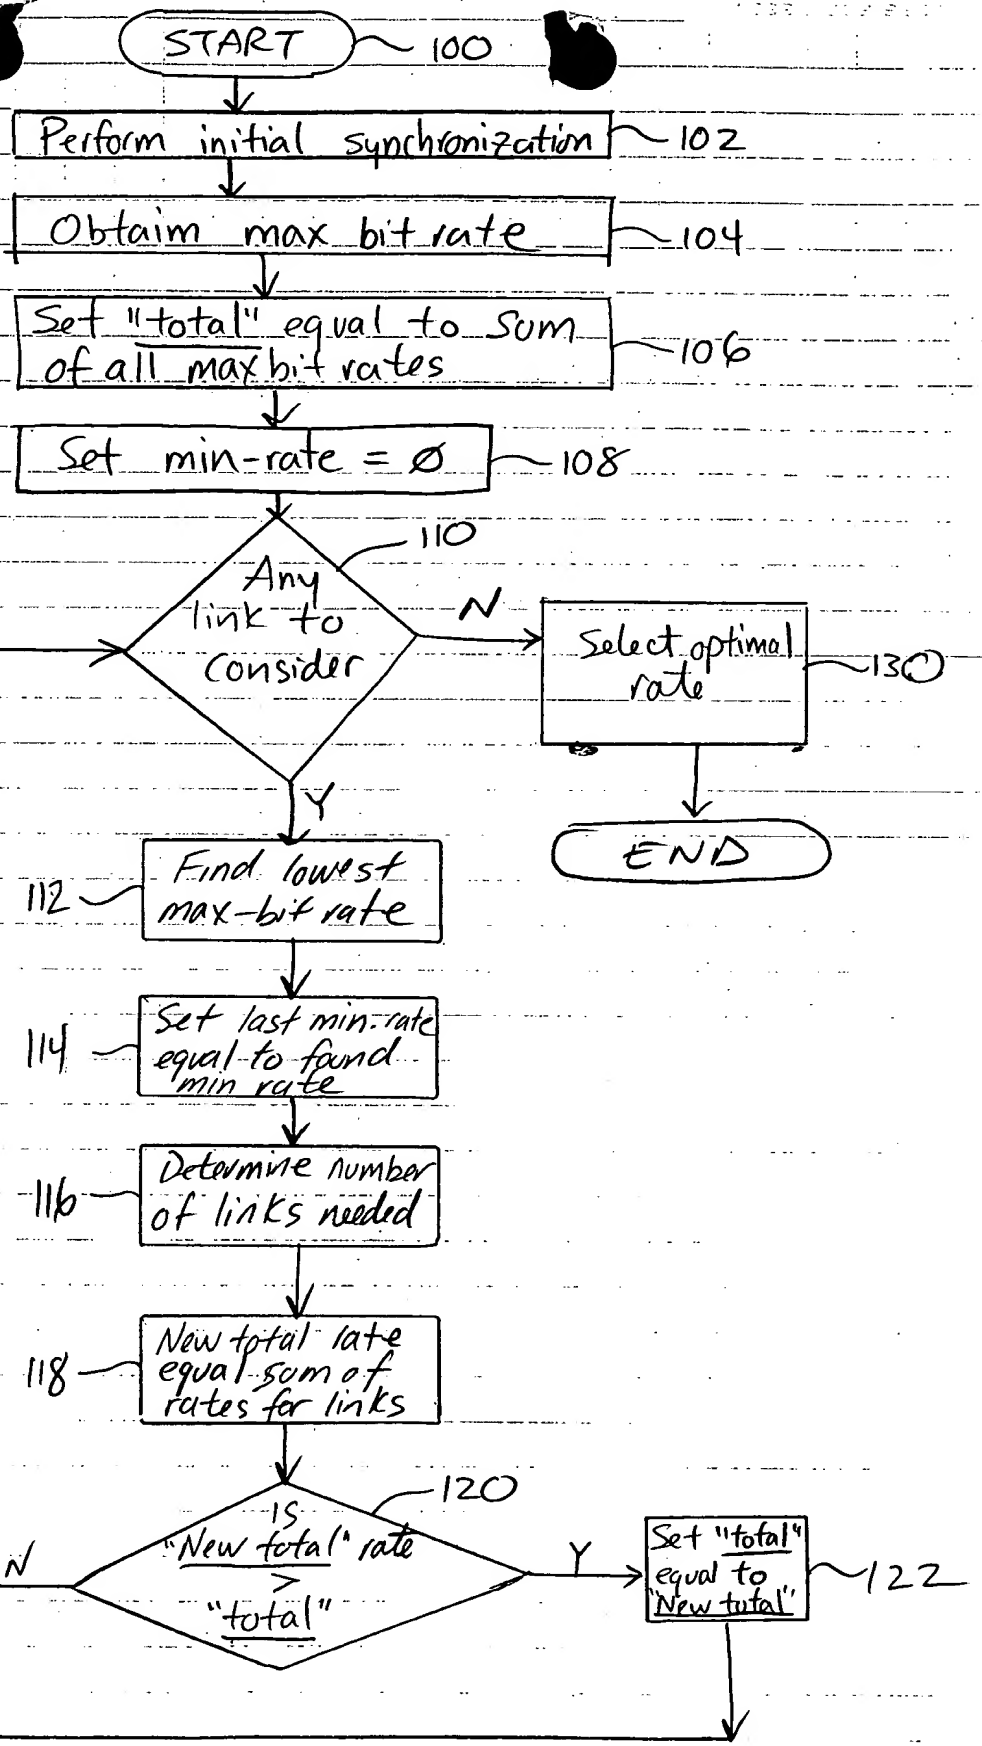 START 100
Perform initial synchronization 102
Obtaim max bit rate 104
Set "total" equal to sum
of all max bit rates 106
Set min-rate = Ø 108
110
Any
link to
consider
N
Select optimal
rate
130
Y
END
Find lowest
max-bit rate
112
Set last min-rate
equal to found
min rate
114
Determine number
of links needed
116
New total rate
equal sum of
rates for links
118
120
Is
"New total" rate
>
"total"
N
Y
Set "total"
equal to
"New total"
122